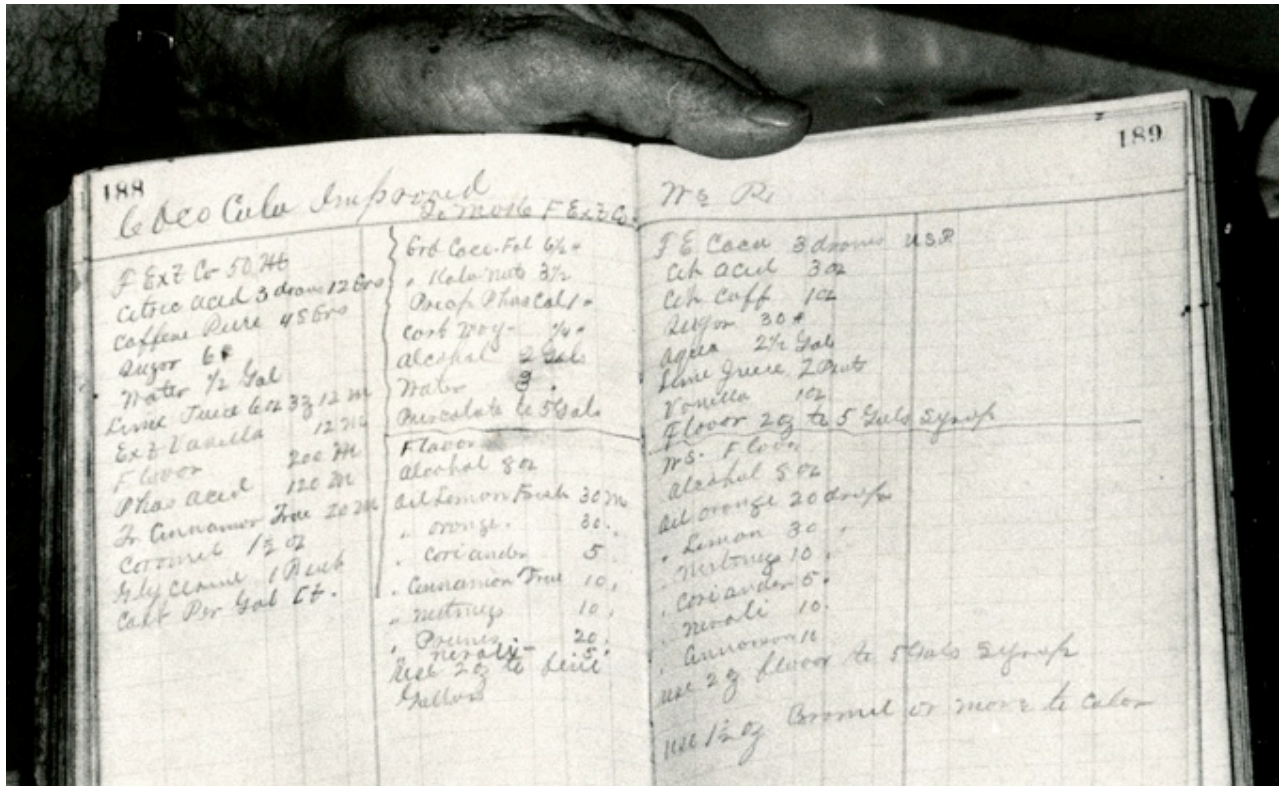 188
Coco Cola Improved
F Ext Co 50 M
Citric Acid 3 drams 12 Grs
Caffene Pure 45 Grs
Sugor 6 #
Water 1/2 Gal
Lime Juice 6 oz 3ʒ 12 M
Ext Vanilla 12 M
Flovor 200 M
Phos Acid 120 M
Tr Cinnamon True 20 M
Coromel 1½ oz
Cost Per Gal
To Make F Ext Co.
Grd Coco. Fol 6½ #
" Kola nuts 3½
Precip Phos Cal 1 "
¼ "
Alcohol 2 Gals
Water 3 "
Percolate to 5 Gals
Flavor
Alcohol 8 oz
Oil Lemon 30 M
" oronge. 30.
" Coriander 5
" Cinnamon True 10,
" Nutmegs 10,
" 20.
neroli - 5.
Use 2 oz to
Gallons
189
F E Coca 3 drams USP
Cit Acid 3 oz
Cit Caff 1 oz
Sugor 30 #
Aqua 2½ Gal
Lime Juice 2 Pints
Vanilla 1 oz
Flovor 2 oz to 5 Gals Syrup
Flovor
Alcohol 8 oz
Oil orange 20 drops
" Lemon 30 "
" Nutmegs 10 "
" Coriander 5 "
" Neroli 10 "
" Cinnomon 10
use 2 oz flovor to 5 Gals Syrup
use 1½ oz or more to Color